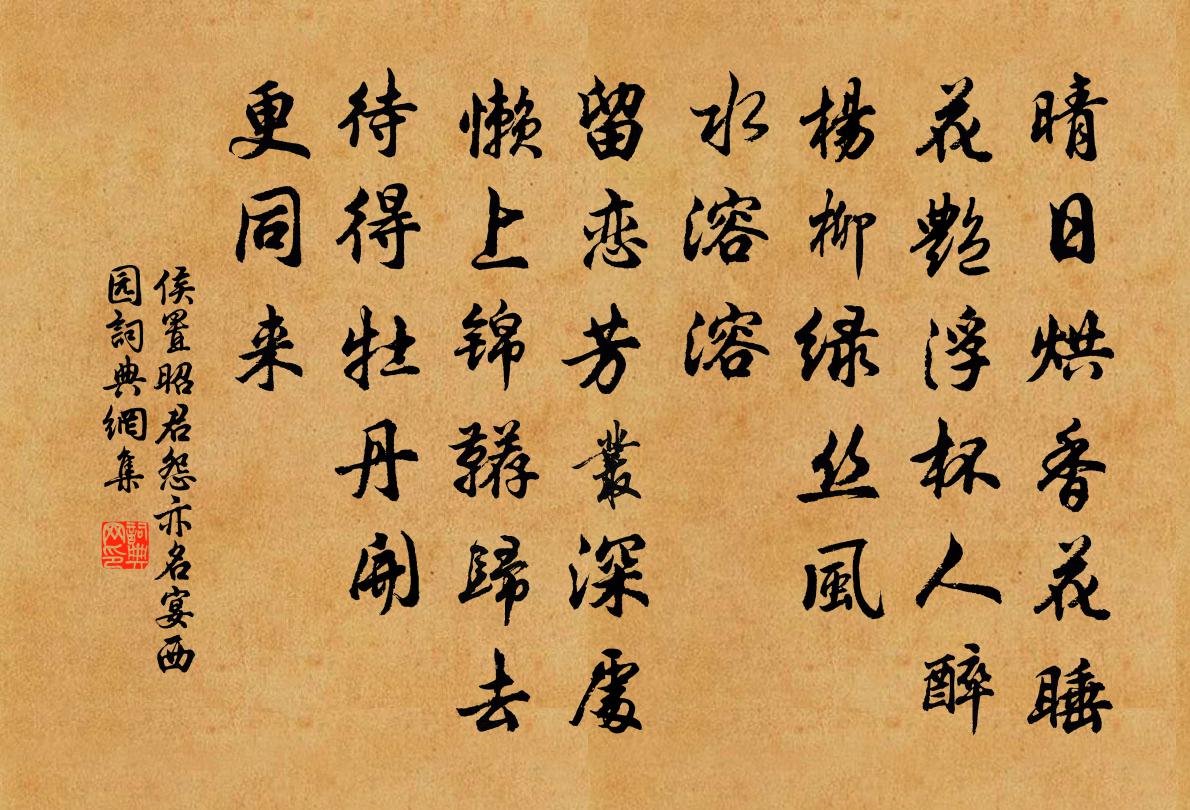 晴日烘香花睡
花艷浮杯人醉
楊柳绿丝風
水溶溶
留恋芳叢深處
懒上锦韉歸去
待得牡丹開
更同来
侯置昭君怨亦名宴西
园詞典網集
詞典
网印